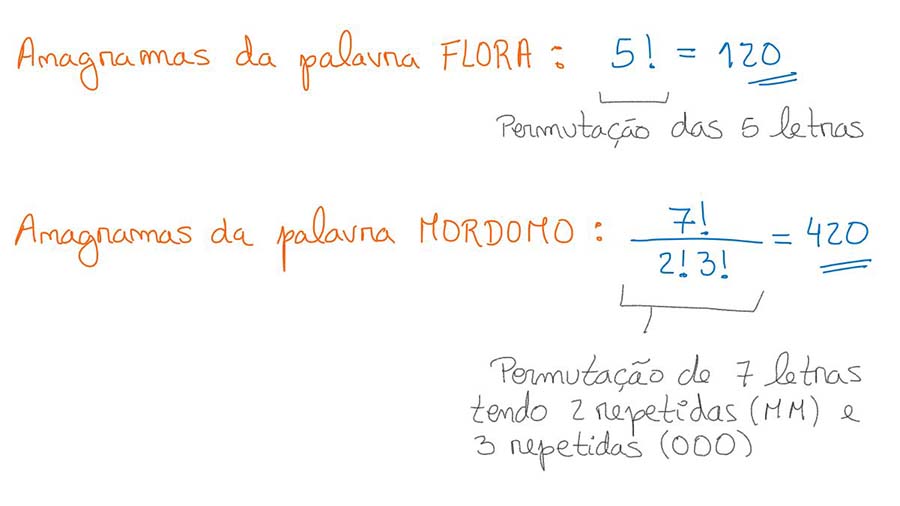 Anagramas da palavra FLORA : 5! = 120
Permutação das 5 letras
Anagramas da palavra MORDOMO : 7! / 2! 3! = 420
Permutação de 7 letras
tendo 2 repetidas (MM) e
3 repetidas (OOO)